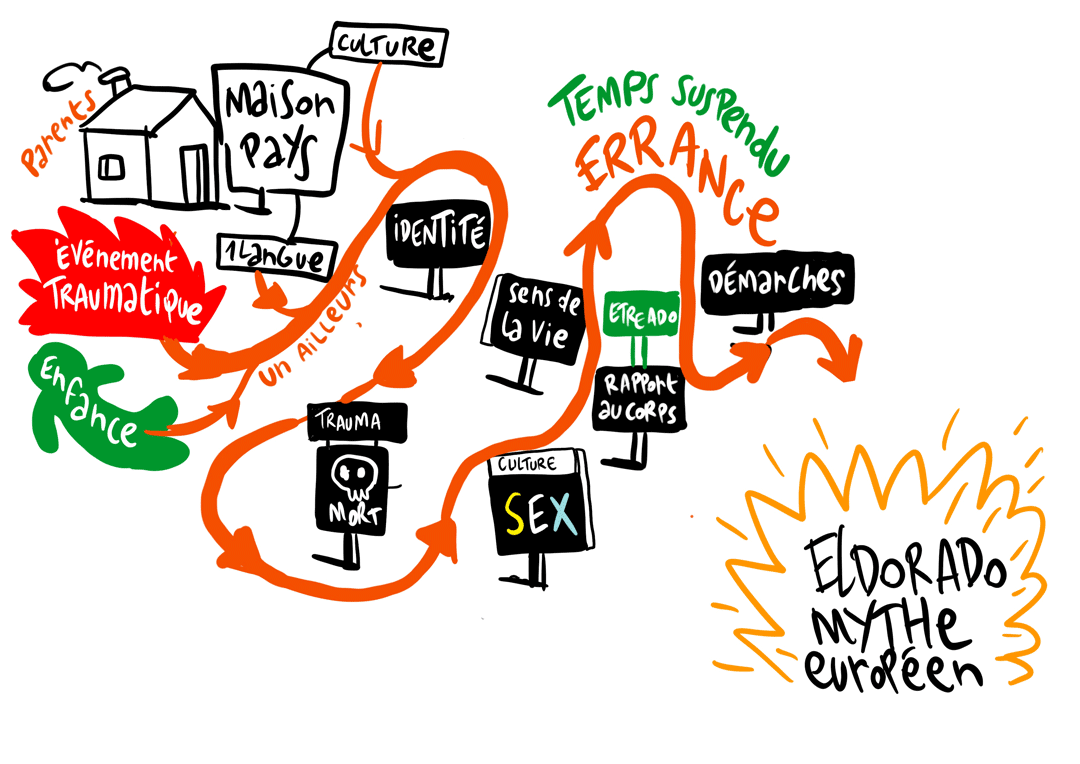 CULTURE
Parents
maison
pays
1 Langue
ÉVÉNEMENT
TRAUMATIQUE
Enfance
UN AILLEURS
iDENTITÉ
TRAUMA
MORT
sens de
la vie
CULTURE
SEX
TEMPS SUSPENDU
ERRANCE
ETRE ADO
RAPPORT
AU CORPS
DÉMARCHES
ELDORADO
MYTHE
européen